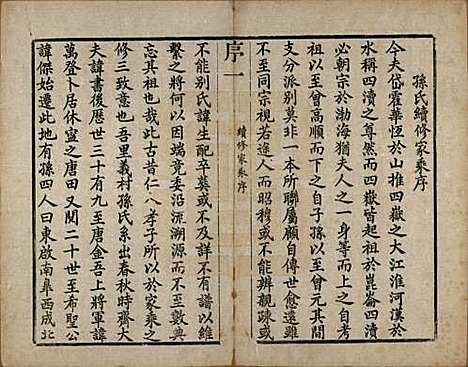 孫氏續修家乘序
今夫岱霍華恆於山推四嶽之大江淮河漢於
水稱四瀆之尊然而四嶽皆起祖於崑崙四瀆
必朝宗於渤海猶夫人之一身等而上之自考
祖以至曾高順而下之自子孫以至曾元其間
支分派別莫非一本所聯屬顧自傳世愈遠雖
不至同宗視若途人而昭穆或不能辨親疎或
續修家乘序
序一
不能別氏諱生配卒葬或不及詳不有譜以維
繫之將何以因端竟委沿流溯源而不至數典
忘其祖也此古昔仁人孝子所以於家乘之
修三致意也吾里義村孫氏系出春秋時齊大
夫諱書後歷世三十有九至唐金吾上將軍諱
萬登卜居休寧之唐田又閱二十世至希聖公
諱傑始遷此地有孫四人曰東啟南阜西成北